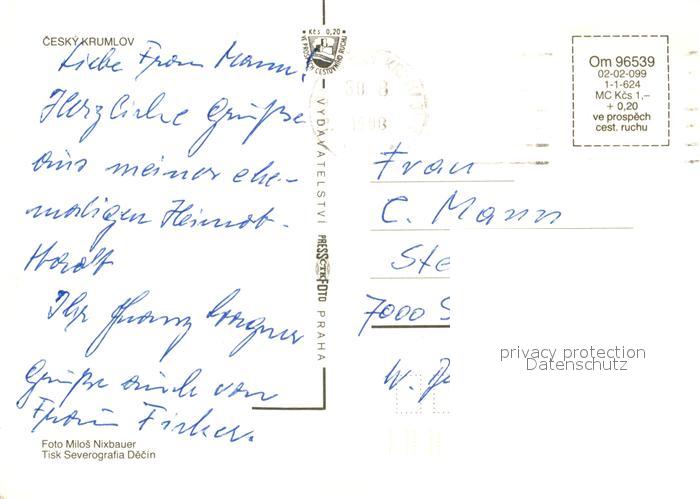 ČESKÝ KRUMLOV
Liebe Frau Mann!
Herzliche Grüße
aus meiner ehe-
maligen Heimat-
stadt
Ihr Wagner
Grüße auch von
Frau Fischer.
Foto Miloš Nixbauer
Tisk Severografia Děčín
Kčs 0,20
VE PROSPĚCH CESTOVNÍHO RUCHU
VYDAVATELSTVÍ PRESSFOTO PRAHA
Om 96539
02-02-099
1-1-624
MC Kčs 1,–
+ 0,20
ve prospěch
cest. ruchu
Frau
C. Mann
Ste
7000 S
W.
privacy protection
Datenschutz